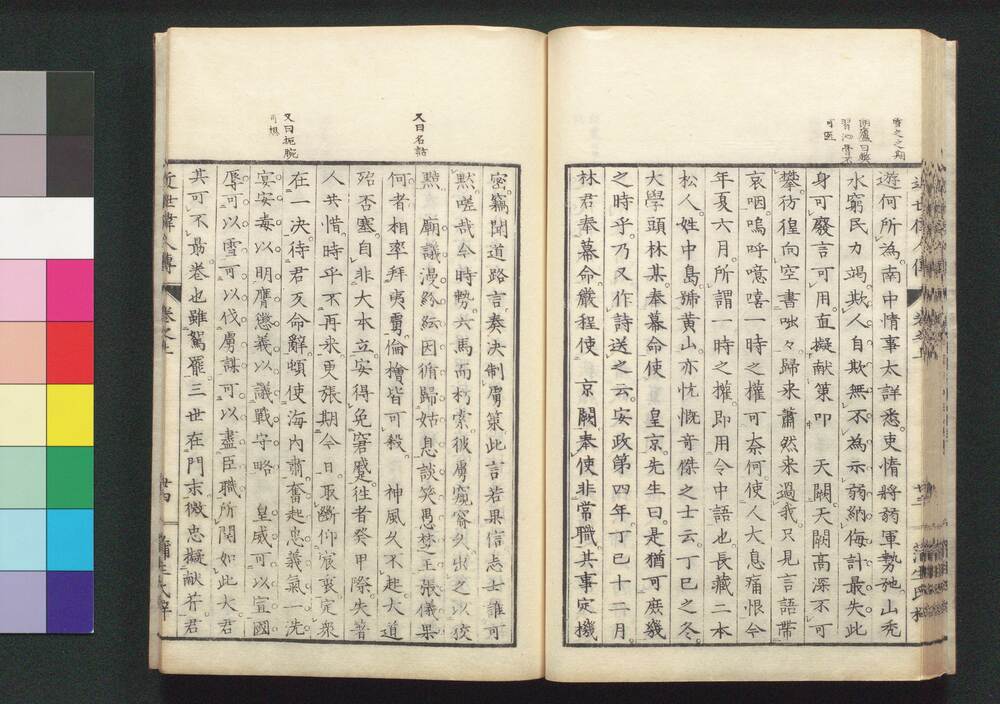 遊何所為南中情事太詳悉吏惰將弱軍勢弛山禿
水窮民力竭欺人自欺無不為示弱納侮計最失此
身可廢言可用直擬献策叩　天闕天闕高深不可
攀彷徨向空書咄々歸来蕭然来過我只見言語帶
哀咽嗚呼噫嘻一時之權可奈何使人大息痛恨今
年夏六月所謂一時之權即用令中語也長藏二本
松人姓中島號黄山亦忼慨奇傑之士云丁巳之冬
大學頭林某奉幕命使　皇京先生曰是猶可庶幾
之時乎乃又作詩送之云安政第四年丁巳十二月
林君奉幕命嚴程使　京闕奉使非常職其事定機
又曰名詰
又曰扼腕
密竊聞道路言奏決制虜策此言若果信志士誰可
默嗟哉今時勢六馬而朽索彼虜窺窬久出之以狡
黠　廟議漫紛紜因循歸姑息談笑愚梦王張儀果
何者相率拜夷虜倫檜皆可殺　神風久不起大道
殆否塞自非大本立安得免窘蹙徃者癸甲際失著
人共惜時乎不再来更張期今日取斷仰宸衷定衆
在一決待君反命辭頓使海内肅奮起忠義氣一洗
宴安毒以明膺懲義以議戰守略　皇威可以宣國
辱可以雪可以伐虜謀可以盡臣職所関如此大君
其可不勗巻也雖駑罷三世在門末微忠擬献芹君
近世偉人傳